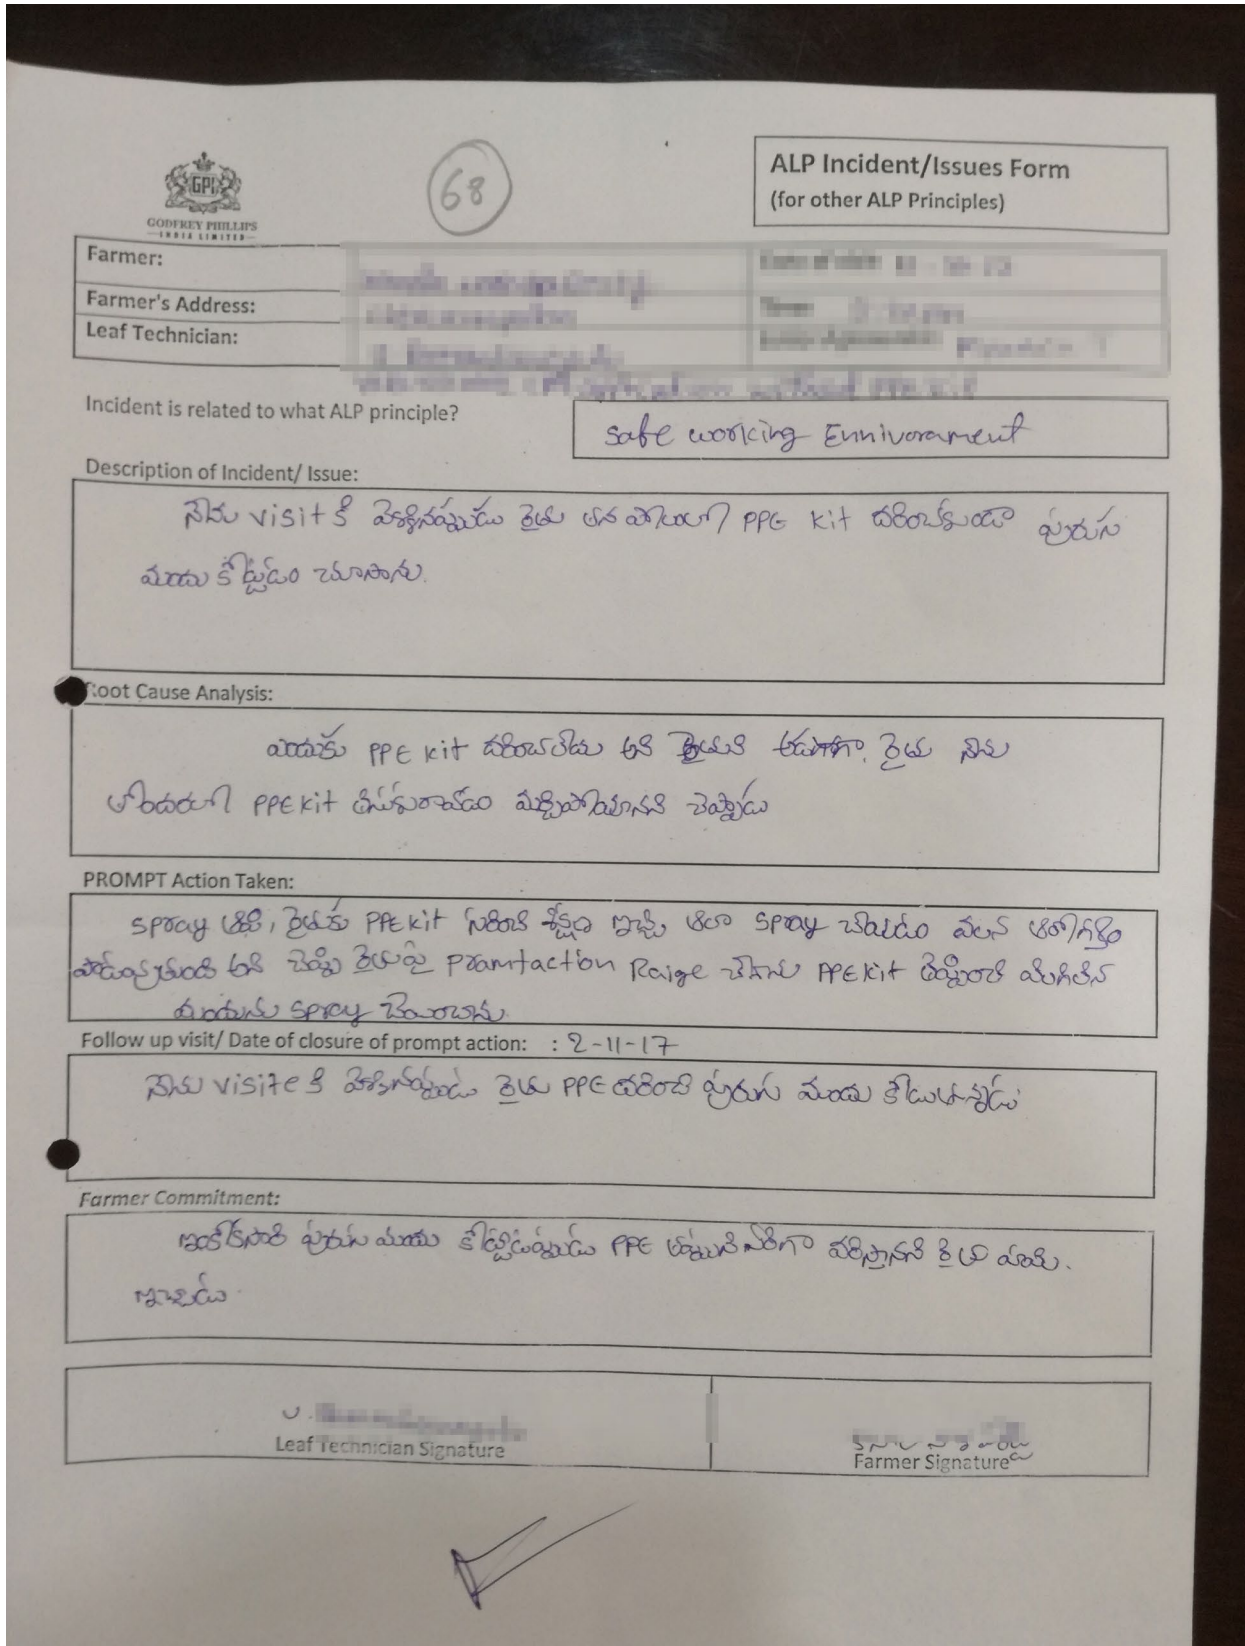 68
ALP Incident/Issues Form
(for other ALP Principles)
GPI
GODFREY PHILLIPS
INDIA LIMITED
Farmer:
Farmer's Address:
Leaf Technician:
Incident is related to what ALP principle?
Safe working Ennivorament
Description of Incident/ Issue:
నేను visit కి వెళ్లినప్పుడు రైతు తన పొలంలో PPE kit దరించకుండా పురుగు
మందు కొట్టడం చూసాను.
Root Cause Analysis:
ఎందుకు PPE kit దరించలేదు అని రైతుని అడుగగా, రైతు నేను
తొందరలో PPE kit తీసుకురావడం మర్చిపోయానని చెప్పాడు
PROMPT Action Taken:
spray ఆపి, రైతుకు PPE kit గురించి శిక్షణ ఇచ్చి అలా spray చేయడం వలన ఆరోగ్యం
పాడవుతుంది అని చెప్పి రైతుపై pramtaction Raige చేశాను PPE kit తెప్పించి మిగిలిన
మందును spray చేయించాను.
Follow up visit/ Date of closure of prompt action: : 2-11-17
నేను visite కి వెళ్లినప్పుడు రైతు PPE దరించి పురుగు మందు కొడుతున్నాడు
Farmer Commitment:
ఇంకొకసారి పురుగు మందు కొట్టేటప్పుడు PPE తప్పనిసరిగా దరిస్తానని రైతు హామి.
ఇచ్చాడు.
Leaf Technician Signature
Farmer Signature